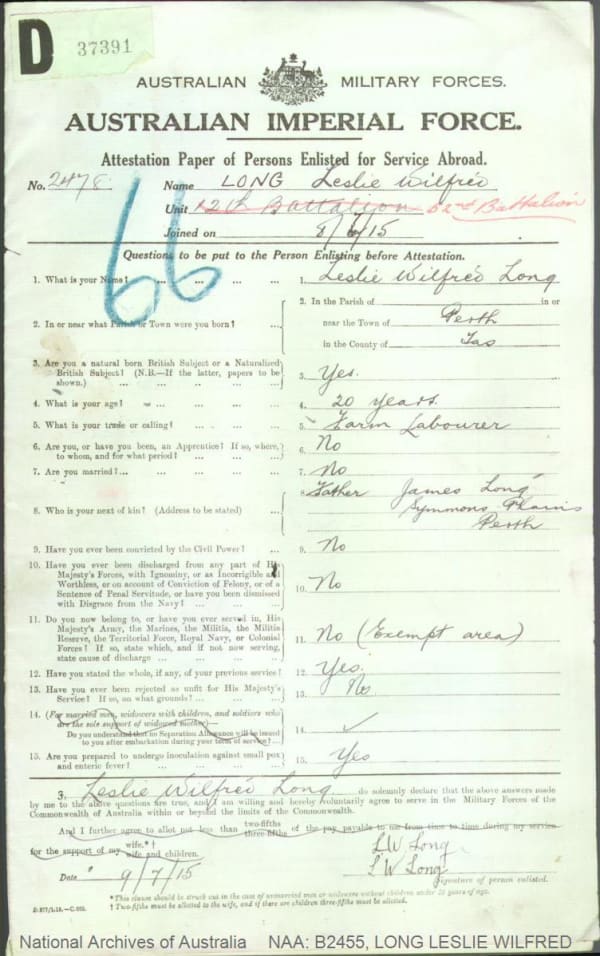 D
37391
AUSTRALIAN MILITARY FORCES.
AUSTRALIAN IMPERIAL FORCE.
Attestation Paper of Persons Enlisted for Service Abroad.
No. 2478. Name LONG Leslie Wilfred
Unit 12th Battalion 52nd Battalion
Joined on 8/6/15
66
Questions to be put to the Person Enlisting before Attestation.
1. What is your Name? ... ... ... ... 1. Leslie Wilfred Long
2. In or near what Parish or Town were you born? ... 2. In the Parish of in or
near the Town of Perth
in the County of Tas
3. Are you a natural born British Subject or a Naturalized
British Subject? (N.B.—If the latter, papers to be
shown.) ... ... ... ... ... 3. Yes.
4. What is your age? ... ... ... ... 4. 20 years.
5. What is your trade or calling? ... ... ... 5. Farm Labourer
6. Are you, or have you been, an Apprentice? If so, where,
to whom, and for what period? ... ... ... 6. No
7. Are you married? ... ... ... ... 7. No
8. Who is your next of kin? (Address to be stated) ... 8. Father James Long
Symmons Plains
Perth
9. Have you ever been convicted by the Civil Power? ... 9. No
10. Have you ever been discharged from any part of His
Majesty's Forces, with Ignominy, or as Incorrigible and
Worthless, or on account of Conviction of Felony, or of a
Sentence of Penal Servitude, or have you been dismissed
with Disgrace from the Navy? ... ... ... 10. No
11. Do you now belong to, or have you ever served in, His
Majesty's Army, the Marines, the Militia, the Militia
Reserve, the Territorial Force, Royal Navy, or Colonial
Forces? If so, state which, and if not now serving,
state cause of discharge ... ... ... 11. No (Exempt area)
12. Have you stated the whole, if any, of your previous service? 12. Yes.
13. Have you ever been rejected as unfit for His Majesty's
Service? If so, on what grounds? ... ... ... 13. No
14. (For married men, widowers with children, and soldiers who
are the sole support of widowed mother)—
Do you understand that no Separation Allowance will be issued
to you after embarkation during your term of service? ... 14. ✓
15. Are you prepared to undergo inoculation against small pox
and enteric fever? ... ... ... ... 15. Yes
3. Leslie Wilfred Long do solemnly declare that the above answers made
by me to the above questions are true, and I am willing and hereby voluntarily agree to serve in the Military Forces of the
Commonwealth of Australia within or beyond the limits of the Commonwealth.
And I further agree to allot not less than two-fifths three-fifths of the pay payable to me from time to time during my service
for the support of my wife.*†
wife and children.
L W Long
L W Long
Date 9/7/15 Signature of person enlisted.
*This clause should be struck out in the case of unmarried men or widowers without children under 18 years of age.
†Two-fifths must be allotted to the wife, and if there are children three-fifths must be allotted.
National Archives of Australia NAA: B2455, LONG LESLIE WILFRED